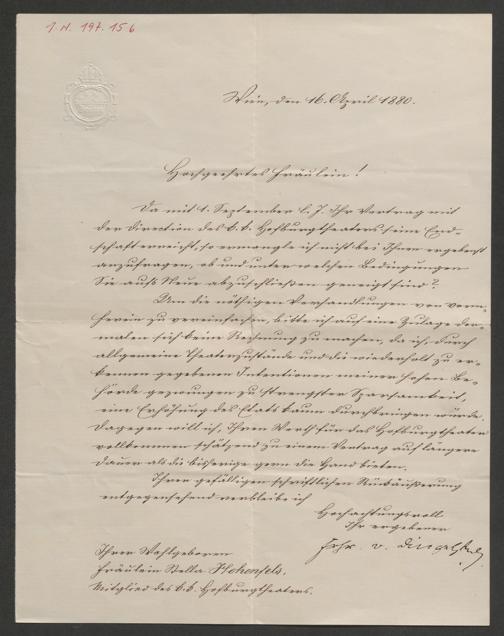 I. N. 197.156
Wien, den 16. April 1880.
Hochgeehrtes Fräulein!
Da mit 1. September l. J. Ihr Vertrag mit
der Direction des k. k. Hofburgtheaters seine End-
schaft erreicht, so ermangle ich nicht bei Ihnen ergebenst
anzufragen, ob und unter welchen Bedingungen
Sie aufs Neue abzuschließen geneigt sind?
Um die nöthigen Verhandlungen von vorn-
herein zu vereinfachen, bitte ich auf eine Zulage der-
malen sich keine Rechnung zu machen, da ich, durch
allgemeine Theaterzustände und die wiederholt zu er-
kennen gegebenen Intentionen meiner hohen Be-
hörde gezwungen zu strengster Sparsamkeit,
eine Erhöhung des Etats kaum durchbringen würde.
Dagegen will ich, Ihren Werth für das Hofburgtheater
vollkommen schätzend zu einem Vertrag auf längere
Dauer als die bisherige gern die Hand bieten.
Ihrer gefälligen schriftlichen Rückäußerung
entgegensehend verbleibe ich
Hochachtungsvoll
Ihr ergebener
Frhr. v. Dingelstedt
Ihrer Wohlgeboren
Fräulein Stella Hohenfels,
Mitglied des k. k. Hofburgtheaters.